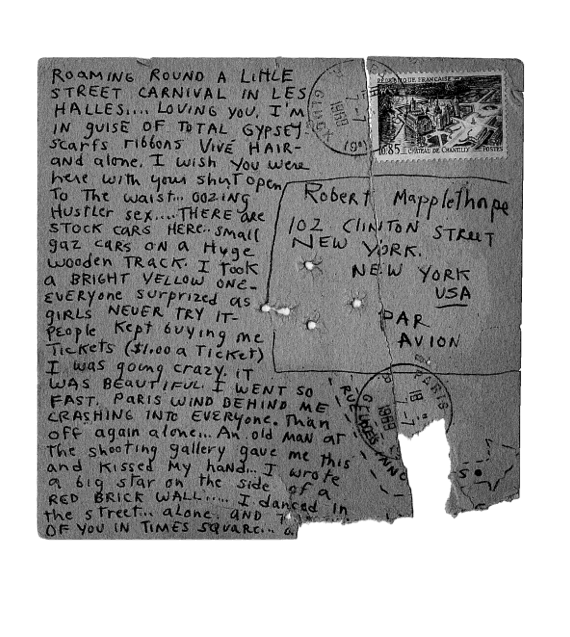 ROAMING ROUND A LITTLE
STREET CARNIVAL IN LES
HALLES.... LOVING YOU. I'M
IN GUISE OF TOTAL GYPSEY
SCARFS RIBBONS VIVE HAIR-
and alone. I wish you were
here with your shirt open
To The waist... OOZING
Hustler sex.... THERE are
STOCK CARS HERE.. small
gaz cars on a Huge
wooden TRACK. I TOOK
a BRIGHT YELLOW ONE-
EVERYONE SURPRIZED as
giRLS NEVER TRY IT-
PEOPLE Kept buying me
Tickets ($1.00 a Ticket)
I was going crazy. IT
WAS BEAUTIFUL. I WENT SO
FAST. PARIS WIND BEHIND ME
CRASHING INTO EVERYONE. Than
off again alone... An old man at
The shooting gallery gave me this
and kissed my hand... I wrote
a big star on the side of a
RED BRICK WALL..... I danced in
the street... alone. AND
OF YOU IN TIMES SQUARE...
Robert Mapplethorpe
102 CLINTON STREET
NEW YORK.
NEW YORK
USA
PAR
AVION
REPUBLIQUE FRANÇAISE
0,85 CHATEAU DE CHANTILLY POSTES
7-7
1969
PARIS
18
7-7
1969